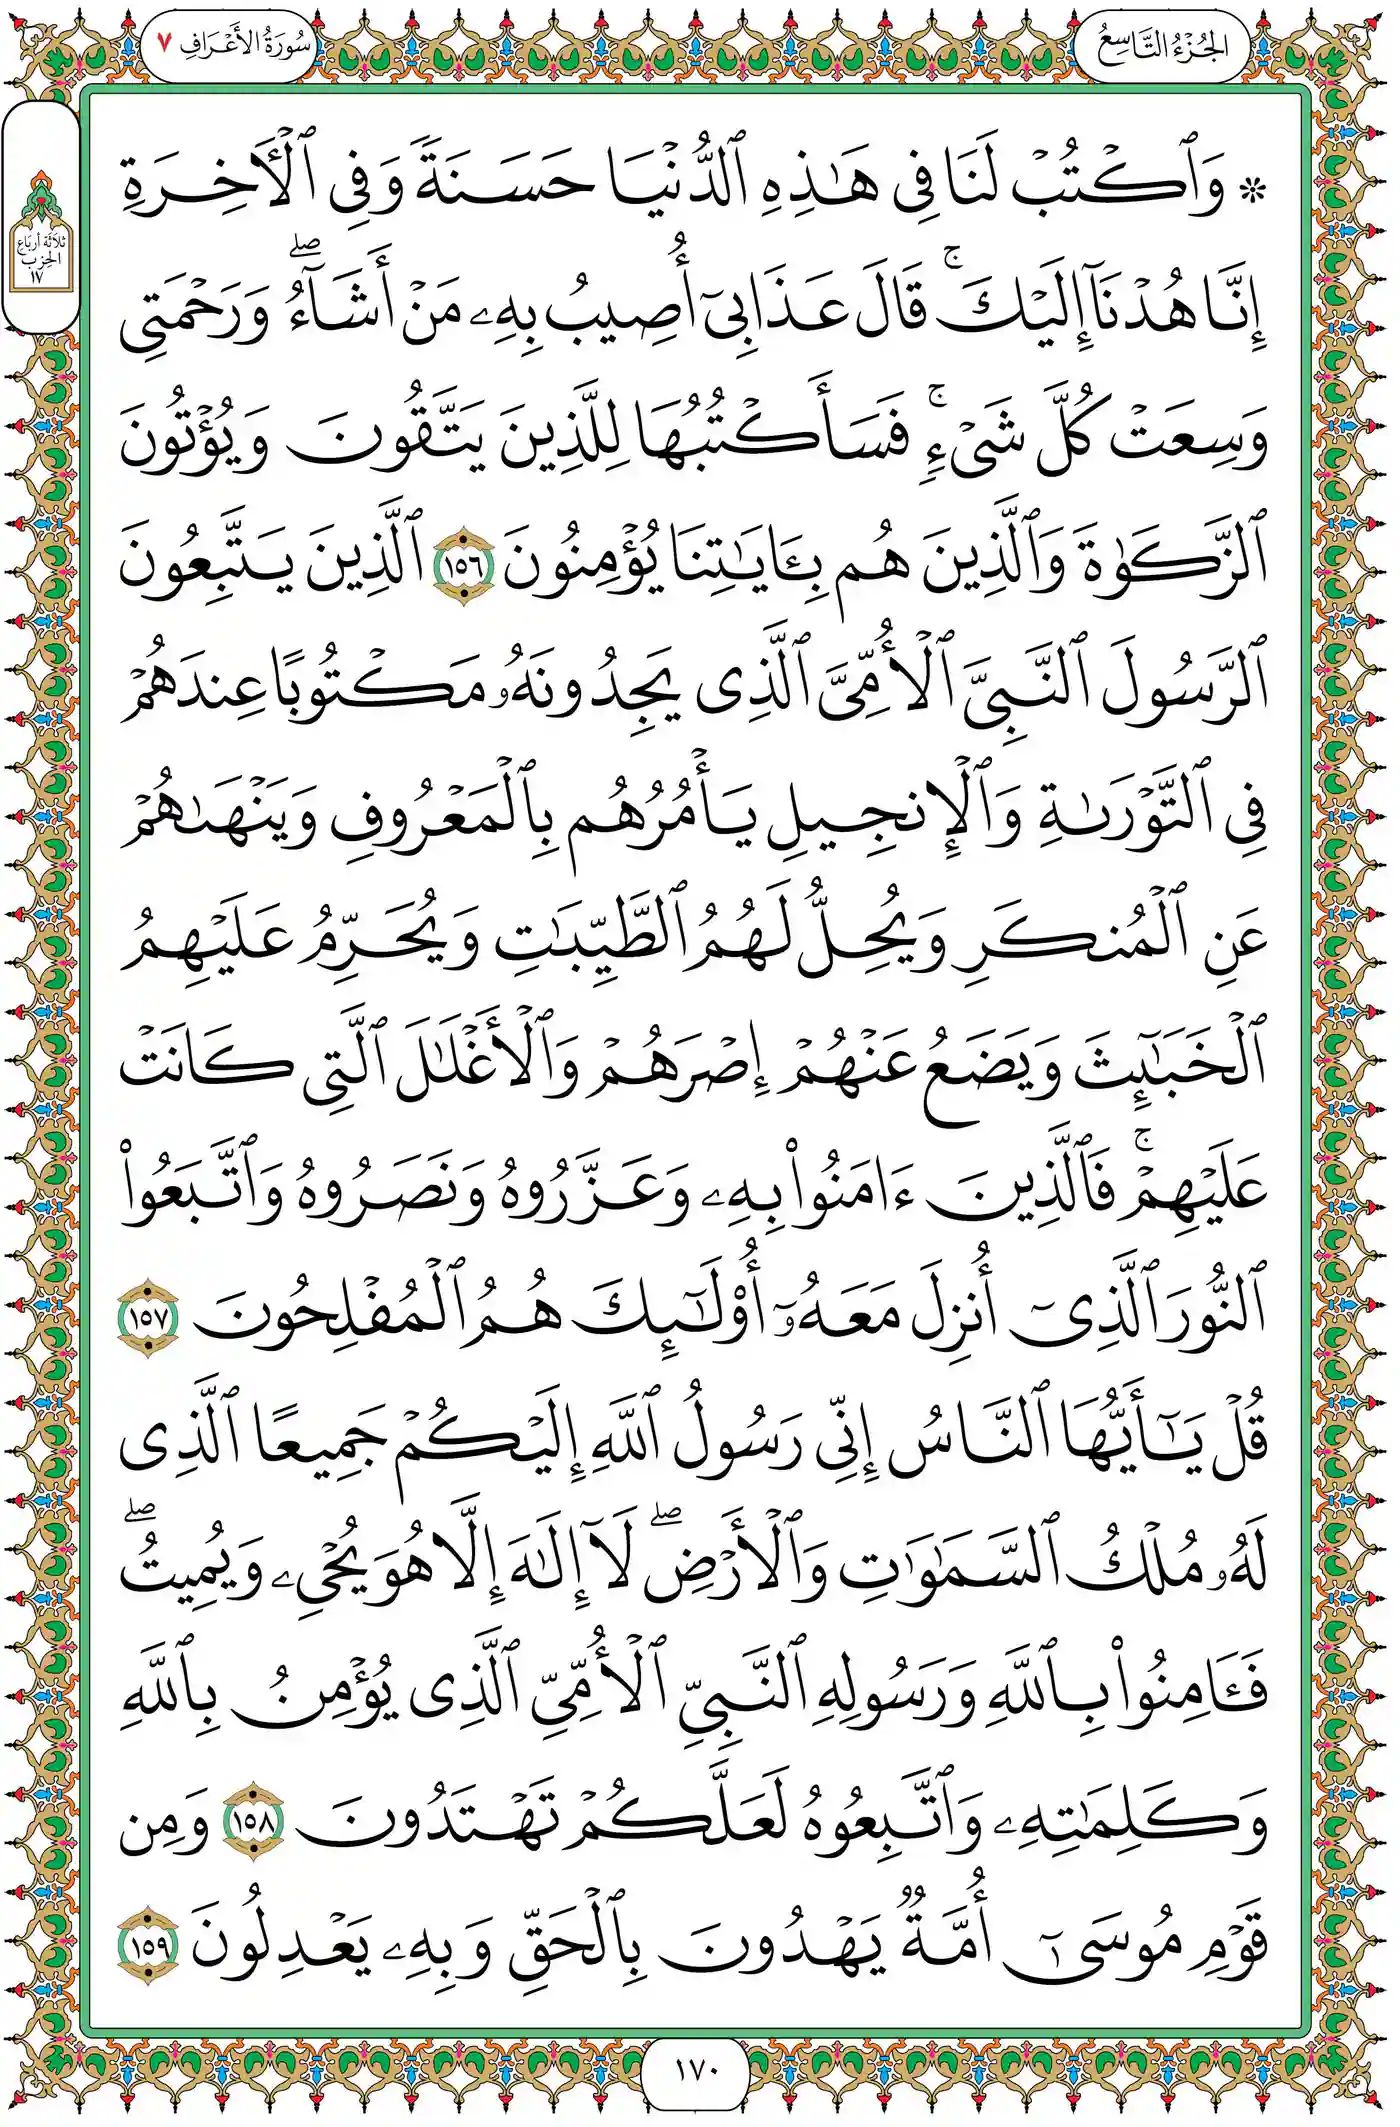 الجُزْءُ التَّاسِعُ
سُورَةُ الأَعْرَافِ ٧
ثلاثة أرباع
الحزب
١٧
۞ وَٱكۡتُبۡ لَنَا فِي هَٰذِهِ ٱلدُّنۡيَا حَسَنَةٗ وَفِي ٱلۡأٓخِرَةِ
إِنَّا هُدۡنَآ إِلَيۡكَۚ قَالَ عَذَابِيٓ أُصِيبُ بِهِۦ مَنۡ أَشَآءُۖ وَرَحۡمَتِي
وَسِعَتۡ كُلَّ شَيۡءٖۚ فَسَأَكۡتُبُهَا لِلَّذِينَ يَتَّقُونَ وَيُؤۡتُونَ
ٱلزَّكَوٰةَ وَٱلَّذِينَ هُم بِـَٔايَٰتِنَا يُؤۡمِنُونَ ١٥٦ ٱلَّذِينَ يَتَّبِعُونَ
ٱلرَّسُولَ ٱلنَّبِيَّ ٱلۡأُمِّيَّ ٱلَّذِي يَجِدُونَهُۥ مَكۡتُوبًا عِندَهُمۡ
فِي ٱلتَّوۡرَىٰةِ وَٱلۡإِنجِيلِ يَأۡمُرُهُم بِٱلۡمَعۡرُوفِ وَيَنۡهَىٰهُمۡ
عَنِ ٱلۡمُنكَرِ وَيُحِلُّ لَهُمُ ٱلطَّيِّبَٰتِ وَيُحَرِّمُ عَلَيۡهِمُ
ٱلۡخَبَٰٓئِثَ وَيَضَعُ عَنۡهُمۡ إِصۡرَهُمۡ وَٱلۡأَغۡلَٰلَ ٱلَّتِي كَانَتۡ
عَلَيۡهِمۡۚ فَٱلَّذِينَ ءَامَنُواْ بِهِۦ وَعَزَّرُوهُ وَنَصَرُوهُ وَٱتَّبَعُواْ
ٱلنُّورَ ٱلَّذِيٓ أُنزِلَ مَعَهُۥٓ أُوْلَٰٓئِكَ هُمُ ٱلۡمُفۡلِحُونَ ١٥٧
قُلۡ يَٰٓأَيُّهَا ٱلنَّاسُ إِنِّي رَسُولُ ٱللَّهِ إِلَيۡكُمۡ جَمِيعًا ٱلَّذِي
لَهُۥ مُلۡكُ ٱلسَّمَٰوَٰتِ وَٱلۡأَرۡضِۖ لَآ إِلَٰهَ إِلَّا هُوَ يُحۡيِۦ وَيُمِيتُۖ
فَـَٔامِنُواْ بِٱللَّهِ وَرَسُولِهِ ٱلنَّبِيِّ ٱلۡأُمِّيِّ ٱلَّذِي يُؤۡمِنُ بِٱللَّهِ
وَكَلِمَٰتِهِۦ وَٱتَّبِعُوهُ لَعَلَّكُمۡ تَهۡتَدُونَ ١٥٨ وَمِن
قَوۡمِ مُوسَىٰٓ أُمَّةٞ يَهۡدُونَ بِٱلۡحَقِّ وَبِهِۦ يَعۡدِلُونَ ١٥٩
١٧٠